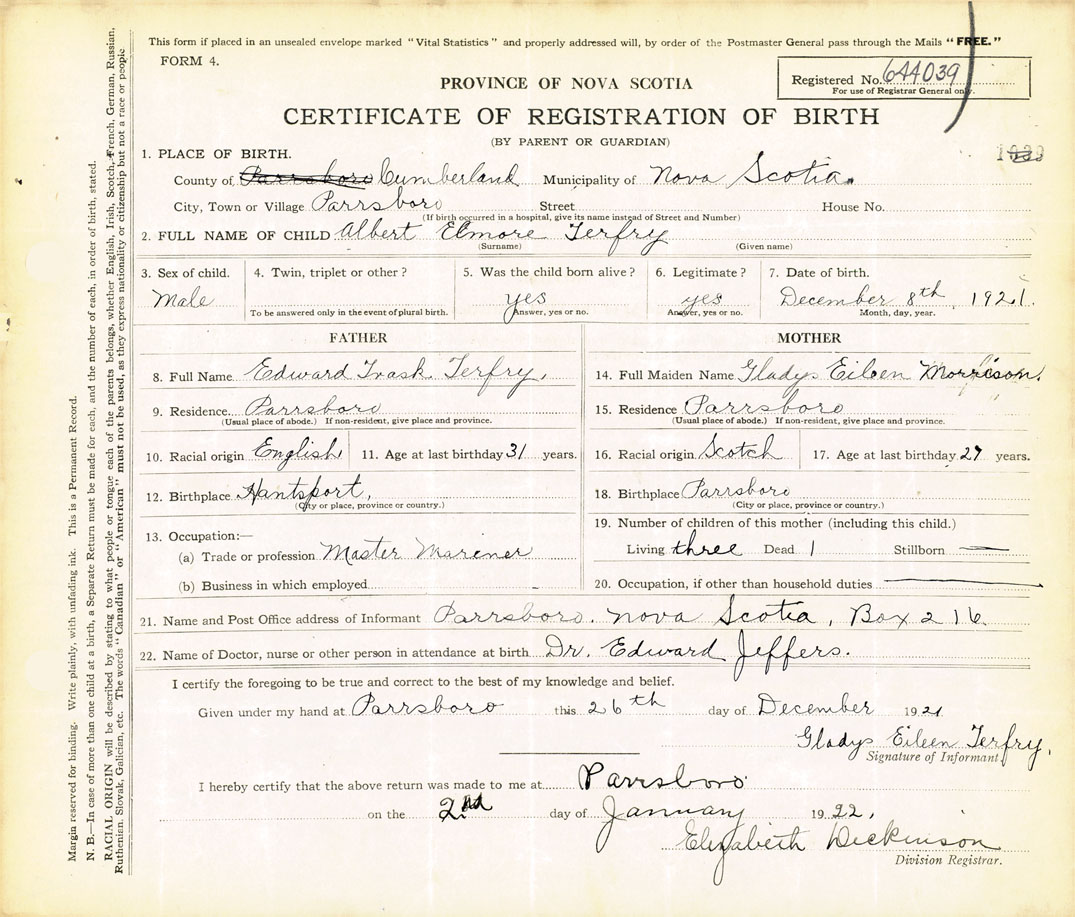 This form if placed in an unsealed envelope marked "Vital Statistics" and properly addressed will, by order of the Postmaster General pass through the Mails "FREE."
FORM 4.
Registered No. 644039
For use of Registrar General only.
PROVINCE OF NOVA SCOTIA
CERTIFICATE OF REGISTRATION OF BIRTH
(BY PARENT OR GUARDIAN)
1. PLACE OF BIRTH.
County of Parrsboro Cumberland Municipality of Nova Scotia.
City, Town or Village Parrsboro Street House No.
(If birth occurred in a hospital, give its name instead of Street and Number)
2. FULL NAME OF CHILD Albert Elmore Terfry
(Surname) (Given name)
3. Sex of child. 4. Twin, triplet or other? 5. Was the child born alive? 6. Legitimate? 7. Date of birth.
Male yes yes December 8th, 1921.
To be answered only in the event of plural birth. Answer, yes or no. Answer, yes or no. Month, day, year.
FATHER MOTHER
8. Full Name Edward Trask Terfry. 14. Full Maiden Name Gladys Eileen Morrison.
9. Residence Parrsboro 15. Residence Parrsboro
(Usual place of abode.) If non-resident, give place and province. (Usual place of abode.) If non-resident, give place and province.
10. Racial origin English 11. Age at last birthday 31 years. 16. Racial origin Scotch 17. Age at last birthday 27 years.
12. Birthplace Hantsport, 18. Birthplace Parrsboro
(City or place, province or country.) (City or place, province or country.)
13. Occupation:— 19. Number of children of this mother (including this child.)
(a) Trade or profession Master Mariner Living three Dead 1 Stillborn —
(b) Business in which employed 20. Occupation, if other than household duties —
21. Name and Post Office address of Informant Parrsboro. Nova Scotia, Box 216
22. Name of Doctor, nurse or other person in attendance at birth Dr. Edward Jeffers.
I certify the foregoing to be true and correct to the best of my knowledge and belief.
Given under my hand at Parrsboro this 26th day of December 1921
Gladys Eileen Terfry.
Signature of Informant
I hereby certify that the above return was made to me at Parrsboro
on the 2nd day of January 1922,
Elizabeth Dickinson
Division Registrar.
Margin reserved for binding. Write plainly, with unfading ink. This is a Permanent Record.
N. B.—In case of more than one child at a birth, a Separate Return must be made for each, and the number of each, in order of birth, stated.
RACIAL ORIGIN will be described by stating to what people or tongue each of the parents belongs, whether English, Irish, Scotch, French, German, Russian,
Ruthenian, Slovak, Galician, etc. The words "Canadian" or "American" must not be used, as they express nationality or citizenship but not a race or people